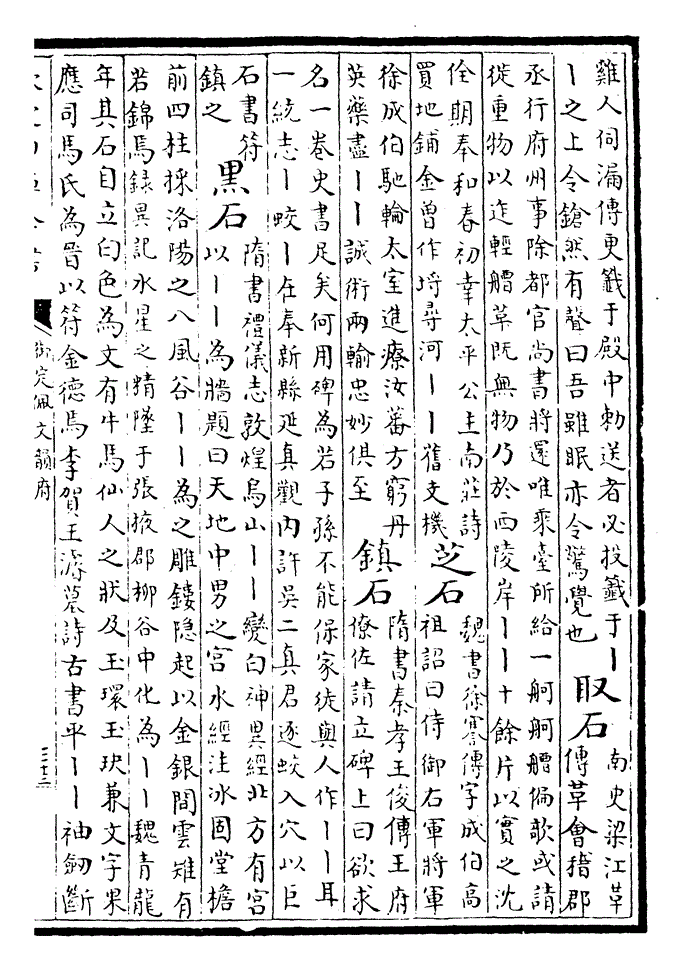 雞人伺漏傳更籖于殿中勅送者必投籖于丨
丨之上令鎗然有聲曰吾雖眠亦令驚覺也
取石
南史梁江革
傳革會稽郡
丞行府州事除都官尚書將還唯乗臺所給一舸舸艚偏欹或請
徙重物以迮輕艚革既無物乃於西陵岸丨丨十餘片以實之沈
佺期奉和春初幸太平公主南莊詩
買地鋪金曾作埒尋河丨丨舊支機
芝石
魏書徐謇傳字成伯高
祖詔曰侍御右軍將軍
徐成伯馳輪太室進療汝蕃方窮丹
英藥盡丨丨誠術兩輸忠妙俱至
鎮石
隋書秦孝王俊傳王府
僚佐請立碑上曰欲求
名一巻史書足矣何用碑為若子孫不能保家徒與人作丨丨耳
一統志丨蛟丨在奉新縣延真觀内許吳二真君逐蛟入穴以巨
石書符
鎮之
黒石
隋書禮儀志敦煌烏山丨丨變白神異經北方有宫
以丨丨為牆題曰天地中男之宫水經注冰固堂檐
前四柱採洛陽之八風谷丨丨為之雕鏤隐起以金銀間雲雉有
若錦焉録異記水星之精墜于張掖郡柳谷中化為丨丨魏青龍
年其石自立白色為文有牛馬仙人之狀及玉環玉玦兼文字果
應司馬氏為晉以符金德焉李賀王濬墓詩古書平丨丨袖劒斷
御定佩文韻府
三十二